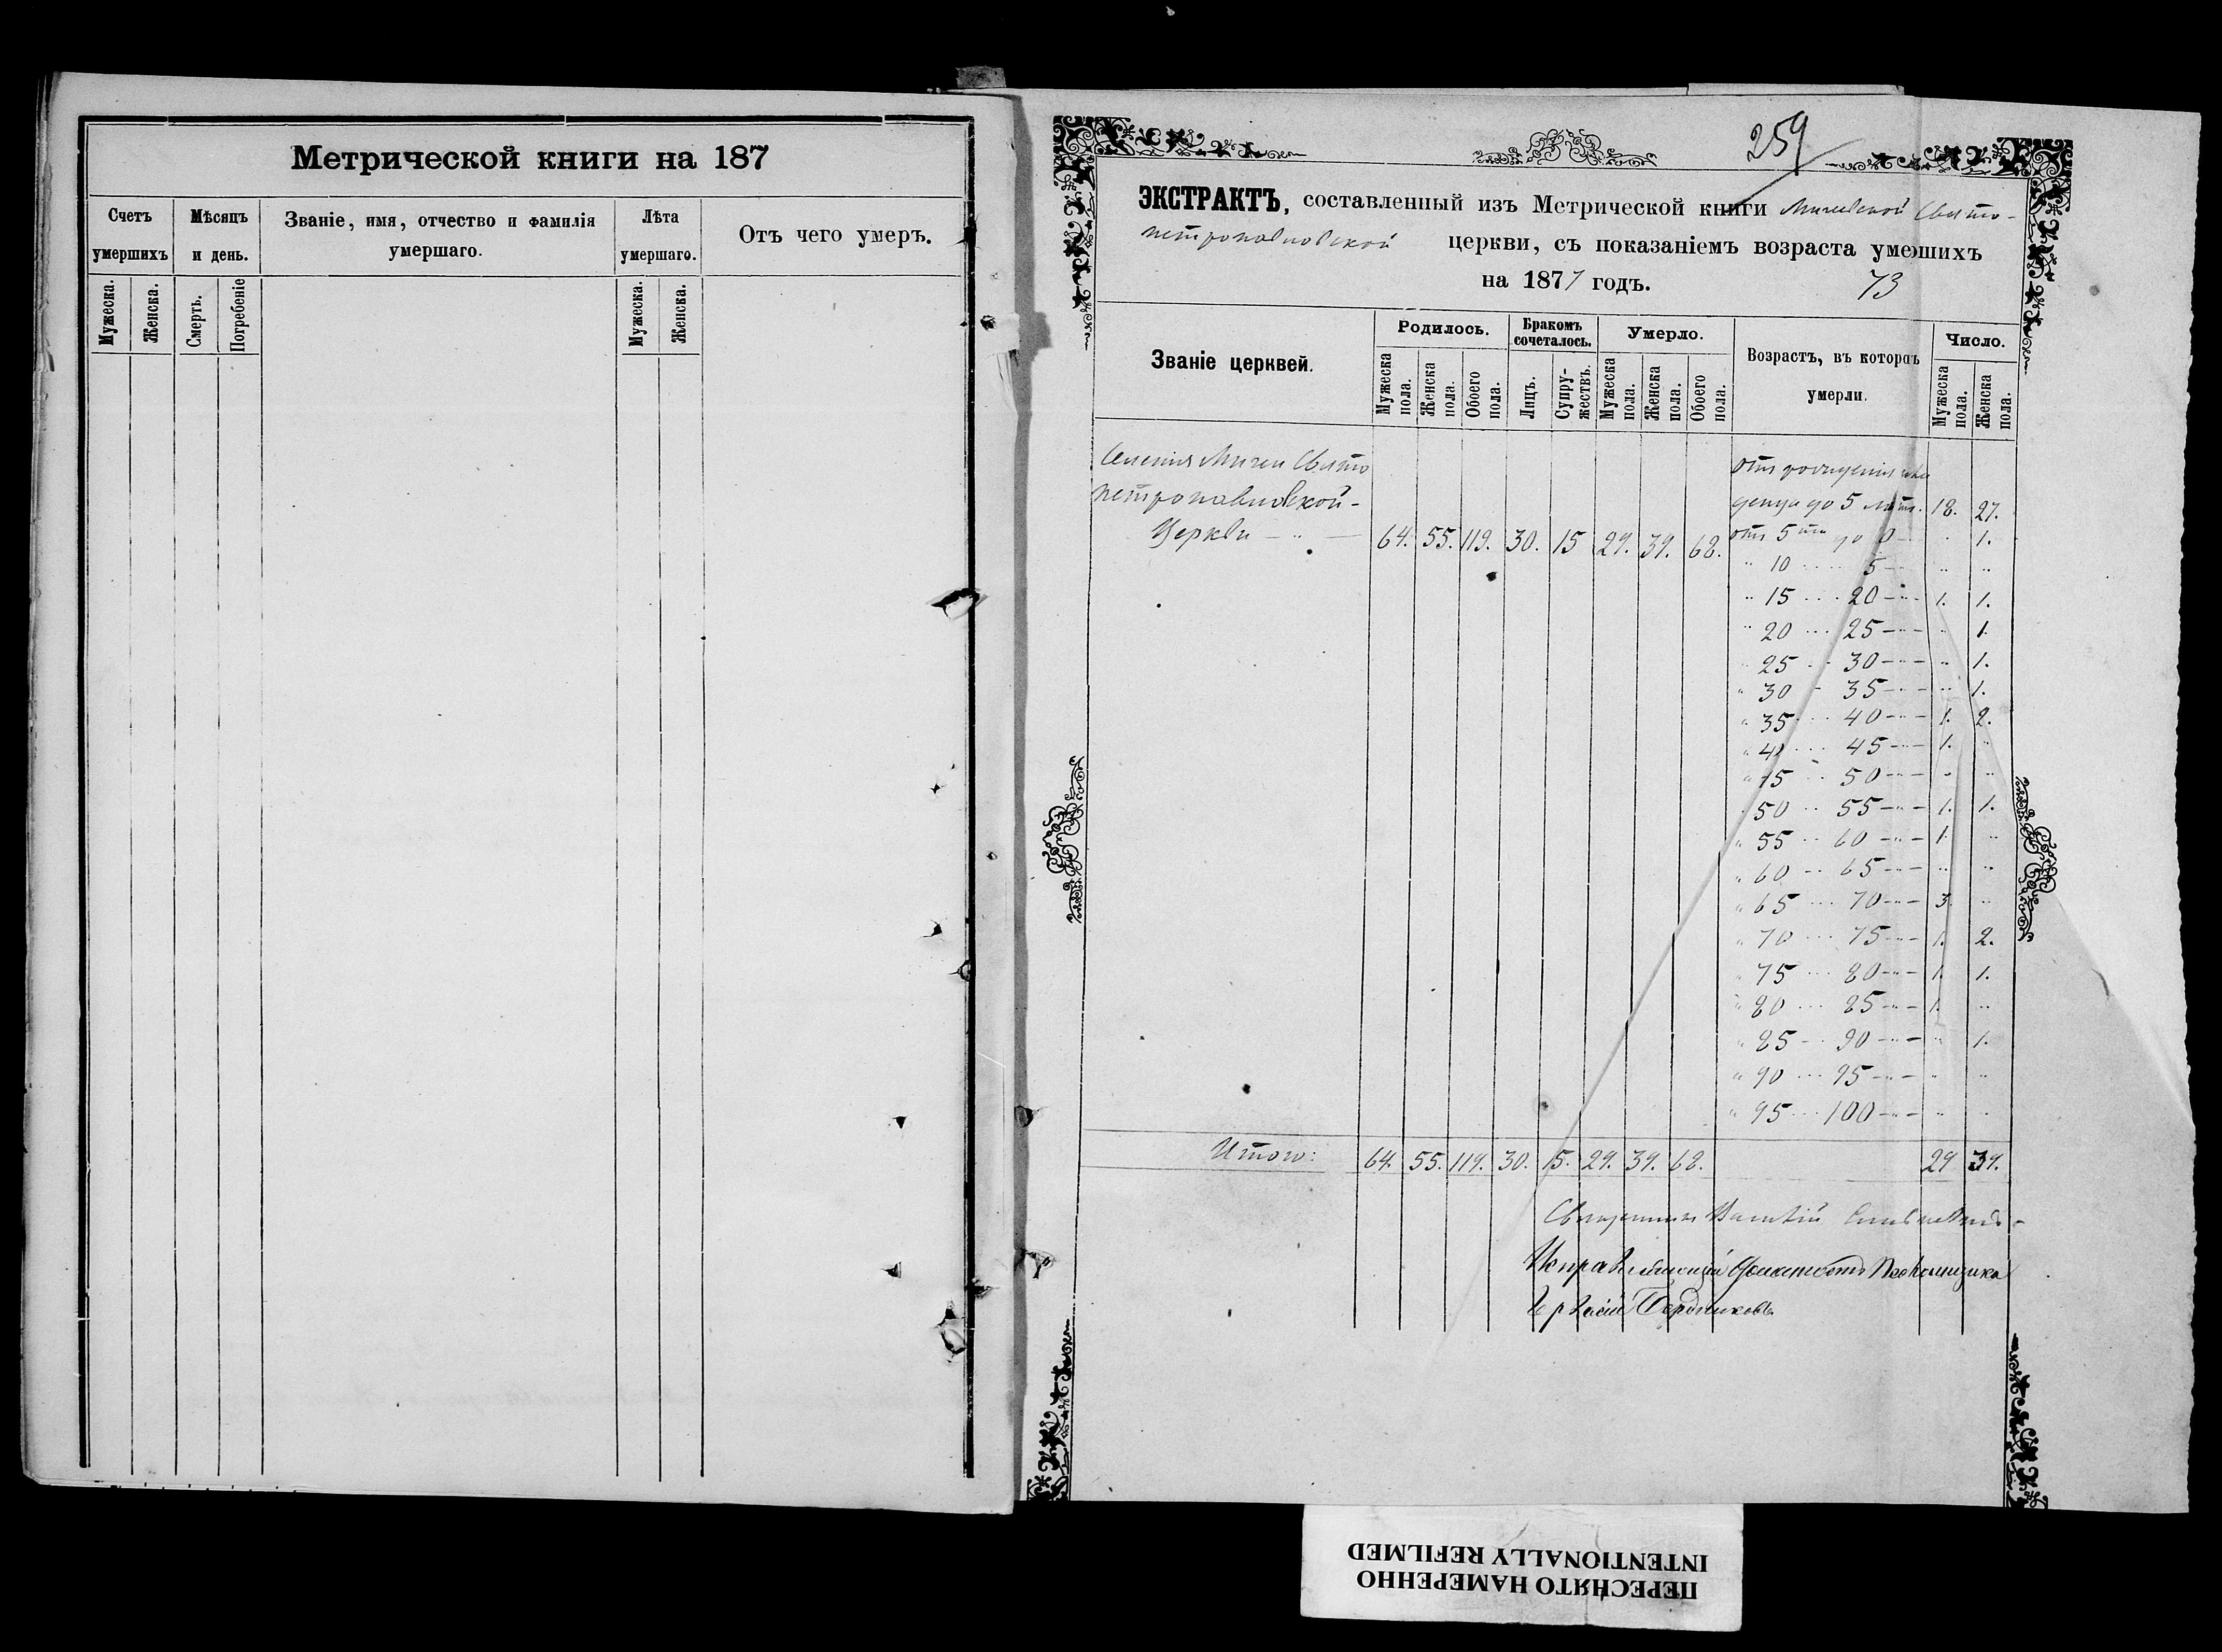 Метрической книги на 187
Счетъ умершихъ
Мѣсяцъ и день.
Званіе, имя, отчество и фамилія
умершаго.
Лѣта умершаго.
Отъ чего умеръ.
Мужеска. Женска. Смерть. Погребеніе Мужеска. Женска.
259
ЭКСТРАКТЪ, составленный изъ Метрической книги Мичевской Свято-
петропавловской церкви, съ показаніемъ возраста умершихъ
на 1877 годъ. 73
Званіе церквей.
Родилось. Бракомъ сочеталось. Умерло.
Возрастъ, въ которомъ умерли.
Число.
Мужеска пола. Женска пола. Обоего пола. Лицъ. Супружествъ. Мужеска пола. Женска пола. Обоего пола. Мужеска пола. Женска пола.
Свято
петропавловской-
Церкви 64. 55. 119. 30. 15 29. 39. 68.
отъ рожденія
до 5 лѣтъ. 18. 27.
отъ 5ти до 10 1.
" 10 15 " "
" 15 20 1. 1.
" 20 25 " 1.
" 25 30 " 1.
" 30 35 " 1.
" 35 40 1. 2.
" 40 45 1. "
" 45 50 " "
" 50 55 1. 1.
" 55 60 1. "
" 60 65 " "
" 65 70 3. "
" 70 75 1. 2.
" 75 80 1. 1.
" 80 85 1. "
" 85 90 " 1.
" 90 95 " "
" 95 100 " "
Итого: 64. 55. 119. 30. 15. 29. 39. 68. 29 39.
Священникъ
Исправляющій должность Псаломщика
Бердниковъ
ПЕРЕСНЯТО НАМЕРЕННО
INTENTIONALLY REFILMED